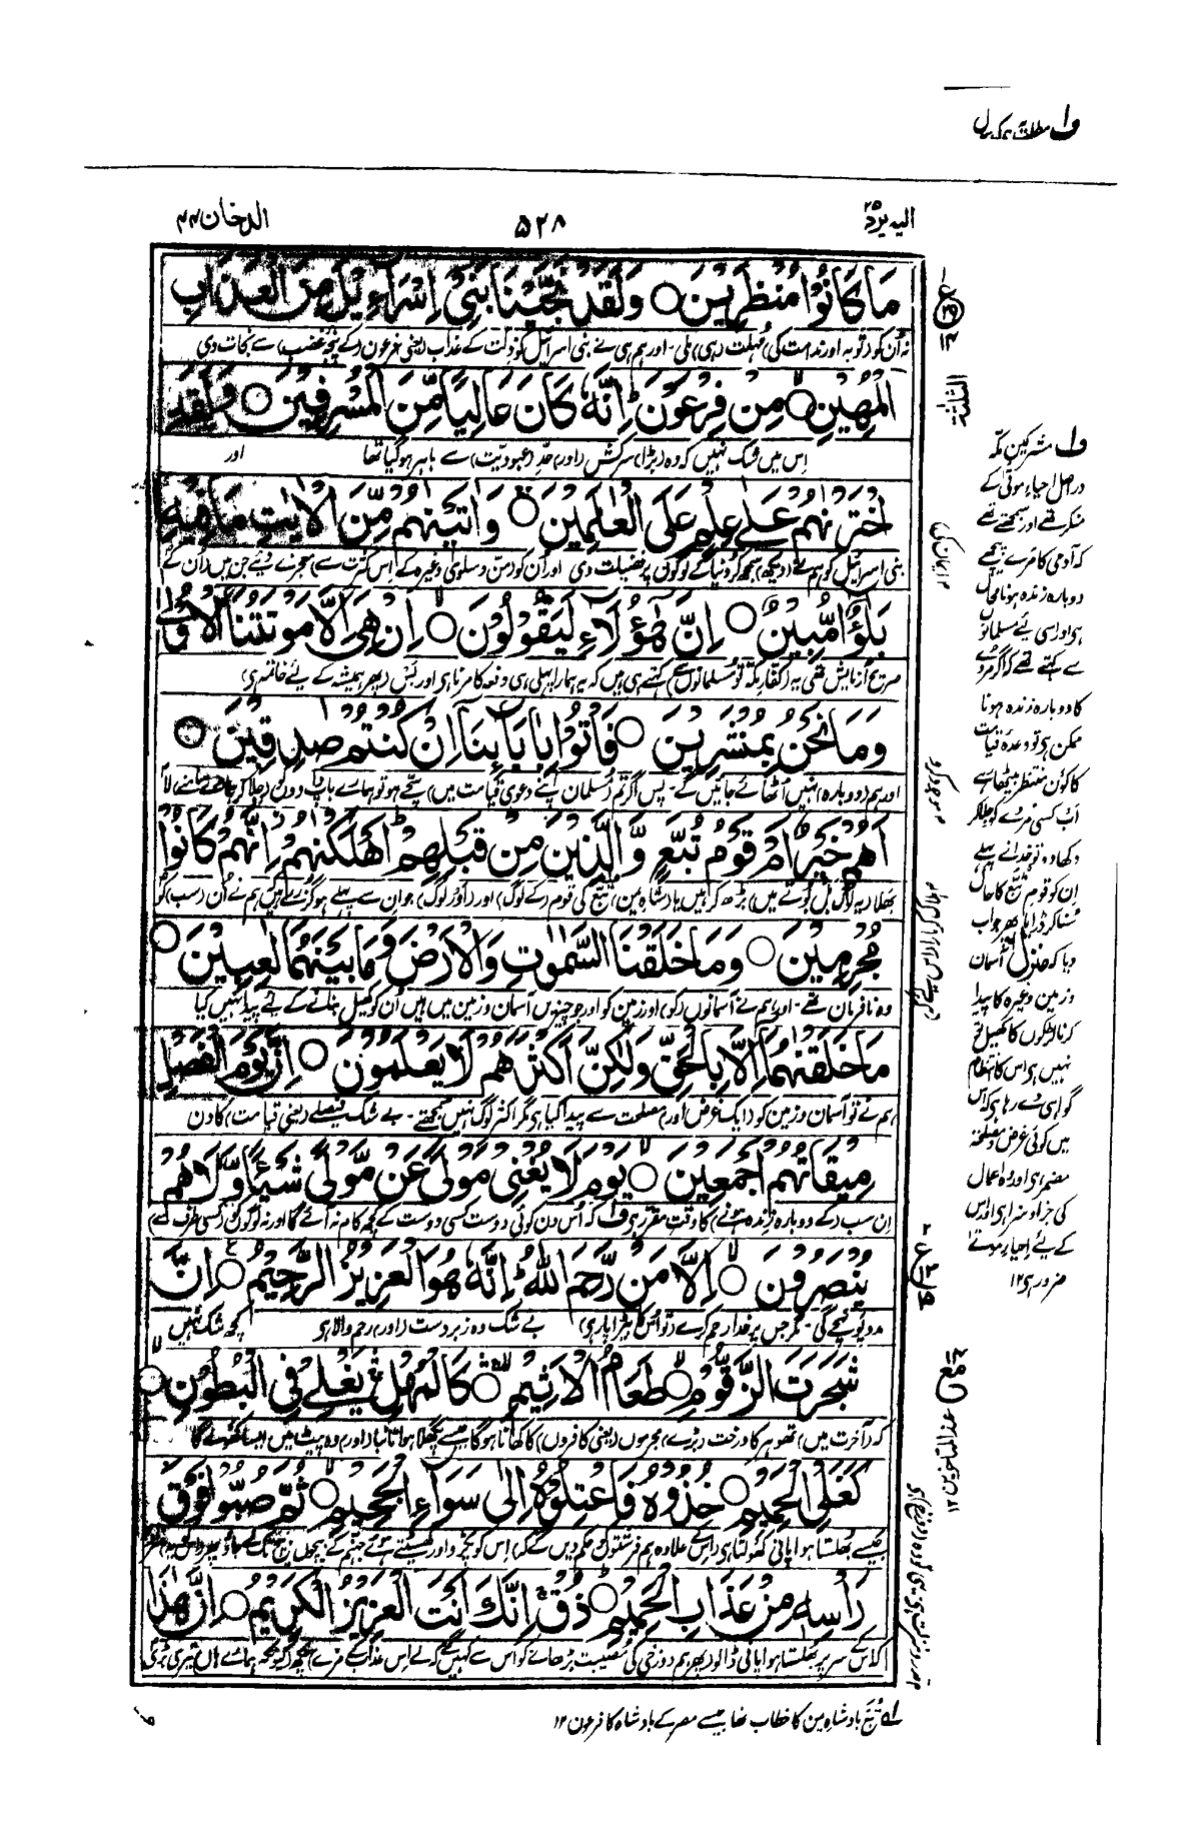 ف۱ مطلب یہ کہ
الیہ یرد ۲۵
۵۲۸
الدخان ۴۴
مَا كَانُوْا مُنْظَرِيْنَ ○ وَلَقَدْ نَجَّيْنَا بَنِيْٓ اِسْرَآءِيْلَ مِنَ الْعَذَابِ
نہ اُن کو (توبہ اور ندامت کی) مُہلت (ہی) ملی۔ اور ہم ہی نے بنی اسرائیل کو ذلت کے عذاب (یعنی فرعون) کے پنجہ غضب) سے نجات دی
الْمُهِيْنِ ○ مِنْ فِرْعَوْنَ ؕ اِنَّهٗ كَانَ عَالِيًا مِّنَ الْمُسْرِفِيْنَ ○ وَلَقَدِ
اِس میں شک نہیں کہ وہ (بڑا) سرکش (اور) حدّ (عبودیت) سے باہر ہو گیا تھا اور
اخْتَرْنٰهُمْ عَلٰى عِلْمٍ عَلَى الْعٰلَمِيْنَ ○ وَاٰتَيْنٰهُمْ مِّنَ الْاٰيٰتِ مَا فِيْهِ
بنی اسرائیل کو ہم نے (دیکھ) سمجھ کر دُنیا کے لوگوں پر فضیلت دی اور اُن کو (من و سلویٰ وغیرہ کے اِس کثرت سے) معجزے دیئے جن میں (اُن کے
بَلٰٓؤٌا مُّبِيْنٌ ○ اِنَّ هٰٓؤُلَآءِ لَيَقُوْلُوْنَ ○ اِنْ هِيَ اِلَّا مَوْتَتُنَا الْاُوْلٰى
صریح آزمایش تھی یہ (کفار مکہ تو مسلمانوں سے) کہتے ہی ہیں کہ یہ ہمارا پہلی ہی دفعہ کا مرنا ہی اور بس (پھر ہمیشہ کے لیے خاتمہ ہی)
وَمَا نَحْنُ بِمُنْشَرِيْنَ ○ فَاْتُوْا بِاٰبَآئِنَآ اِنْ كُنْتُمْ صٰدِقِيْنَ ○
اور ہم (دوبارہ) نہیں اُٹھائے جائیں گے۔ پس اگر تم (مسلمان اپنے دعویٰ قیامت میں) سچے ہو تو ہمارے باپ دادوں (جِلا کر ہمارے سامنے) لا
اَهُمْ خَيْرٌ اَمْ قَوْمُ تُبَّعٍ وَّالَّذِيْنَ مِنْ قَبْلِهِمْ ؕ اَهْلَكْنٰهُمْ ؗ اِنَّهُمْ كَانُوْا
بھلا (یہ لوگ بل بوتے میں) بڑھ کر ہیں یا (شاہ یمن) تبّع کی قوم (کے لوگ) اور (اَور لوگ) جو اِن سے پہلے ہو گزرے ہیں ہم نے اُن (سب) کو
مُجْرِمِيْنَ ○ وَمَا خَلَقْنَا السَّمٰوٰتِ وَالْاَرْضَ وَمَا بَيْنَهُمَا لٰعِبِيْنَ ○
وہ نافرمان تھے۔ اور ہم نے آسمانوں (کو) اور زمین کو اور جو چیزیں آسمان و زمین میں ہیں اُن کو کھیل بنانے کے لئے پیدا نہیں کیا
مَا خَلَقْنٰهُمَآ اِلَّا بِالْحَقِّ وَلٰكِنَّ اَكْثَرَهُمْ لَا يَعْلَمُوْنَ ○ اِنَّ يَوْمَ الْفَصْلِ
ہم نے تو آسمان و زمین کو (ایک غرض اور) مصلحت سے پیدا کیا ہی مگر اکثر لوگ نہیں سمجھتے۔ بے شک فیصلے (یعنی قیامت) کا دن
مِيْقَاتُهُمْ اَجْمَعِيْنَ ○ يَوْمَ لَا يُغْنِيْ مَوْلًى عَنْ مَّوْلًى شَيْـًٔا وَّلَا هُمْ
اِن سب (کے دوبارہ زندہ ہونے) کا وقت مقرر ہی ف۱ کہ اُس دن کوئی دوست کسی دوست کے کچھ کام نہ آئے گا اور نہ لوگوں کو (کسی طرف سے)
يُنْصَرُوْنَ ○ اِلَّا مَنْ رَّحِمَ اللّٰهُ ؕ اِنَّهٗ هُوَ الْعَزِيْزُ الرَّحِيْمُ ○ اِنَّ
مدد پہونچے گی۔ مگر جس پر خدا رحم کرے (تو اُس کا بیڑا پار ہی) بے شک وہ زبردست (اور) رحم والا ہی کچھ شک نہیں
شَجَرَتَ الزَّقُّوْمِ ○ طَعَامُ الْاَثِيْمِ ○ كَالْمُهْلِ ۛۚ يَغْلِيْ فِي الْبُطُوْنِ ○
کہ (آخرت میں) تھوہر کا درخت (بڑے) مجرموں (یعنی کافروں) کا کھانا ہو گا جیسے پگھلا ہوا تانبا (اور) وہ پیٹ میں ایسا کھولے گا
كَغَلْيِ الْحَمِيْمِ ○ خُذُوْهُ فَاعْتِلُوْهُ اِلٰى سَوَآءِ الْجَحِيْمِ ○ ثُمَّ صُبُّوْا فَوْقَ
جیسے جُھلستا ہوا پانی کھولتا ہی (اِس کے علاوہ ہم فرشتوں کو حکم دیں گے کہ) اِس کو پکڑو اور گھسیٹتے ہوئے جہنم کے بیچوں بیچ تک لے جاؤ
رَاْسِهٖ مِنْ عَذَابِ الْحَمِيْمِ ○ ذُقْ ۚۙ اِنَّكَ اَنْتَ الْعَزِيْزُ الْكَرِيْمُ ○ اِنَّ هٰذَا
اِس کے سر پر جھلستا ہوا پانی ڈالو (پھر ہم دوزخی کی مصیبت بڑھانے کو اُس سے کہیں گے کہ لے اِس عذاب کے مزے) چکھ (کیونکہ ہمارے ہاں تیری بڑی
ف۱ مشرکین مکّہ
دراصل احیاءِ موتٰی کے
منکر تھے اور سمجھتے تھے
کہ آدمی کا مرے پیچھے
دوبارہ زندہ ہونا محال
ہی اور اسی لیے مسلمانوں
سے کہتے تھے کہ اگر مُردوں
کا دوبارہ زندہ ہونا
ممکن ہی تو وعدہ قیامت
کا کون منتظر بیٹھا رہے
اب کسی مُردے کو جِلا کر
دکھا دو۔ تو خدا نے پہلے
اِن کو قوم تبّع کا حال
سُنا کر ڈرایا پھر جواب
دیا کہ آسمان
زمین وغیرہ کا پیدا
کرنا لڑکوں کا کھیل تو
نہیں ہی اس کا انتظام
گواہی دے رہا ہی کہ اس
میں کوئی غرض و مصلحت
مضمر ہی اور وہ اعمال
کی جزا و سزا ہی اور اس
کے لیے احیاءِ موتٰے
ضرور ہی ۱۲
الثلثة
عند المتاخرین ۱۲
لہ تُبَّع بادشاہ یمن کا خطاب تھا جیسے مصر کے بادشاہ کا فرعون ۱۲